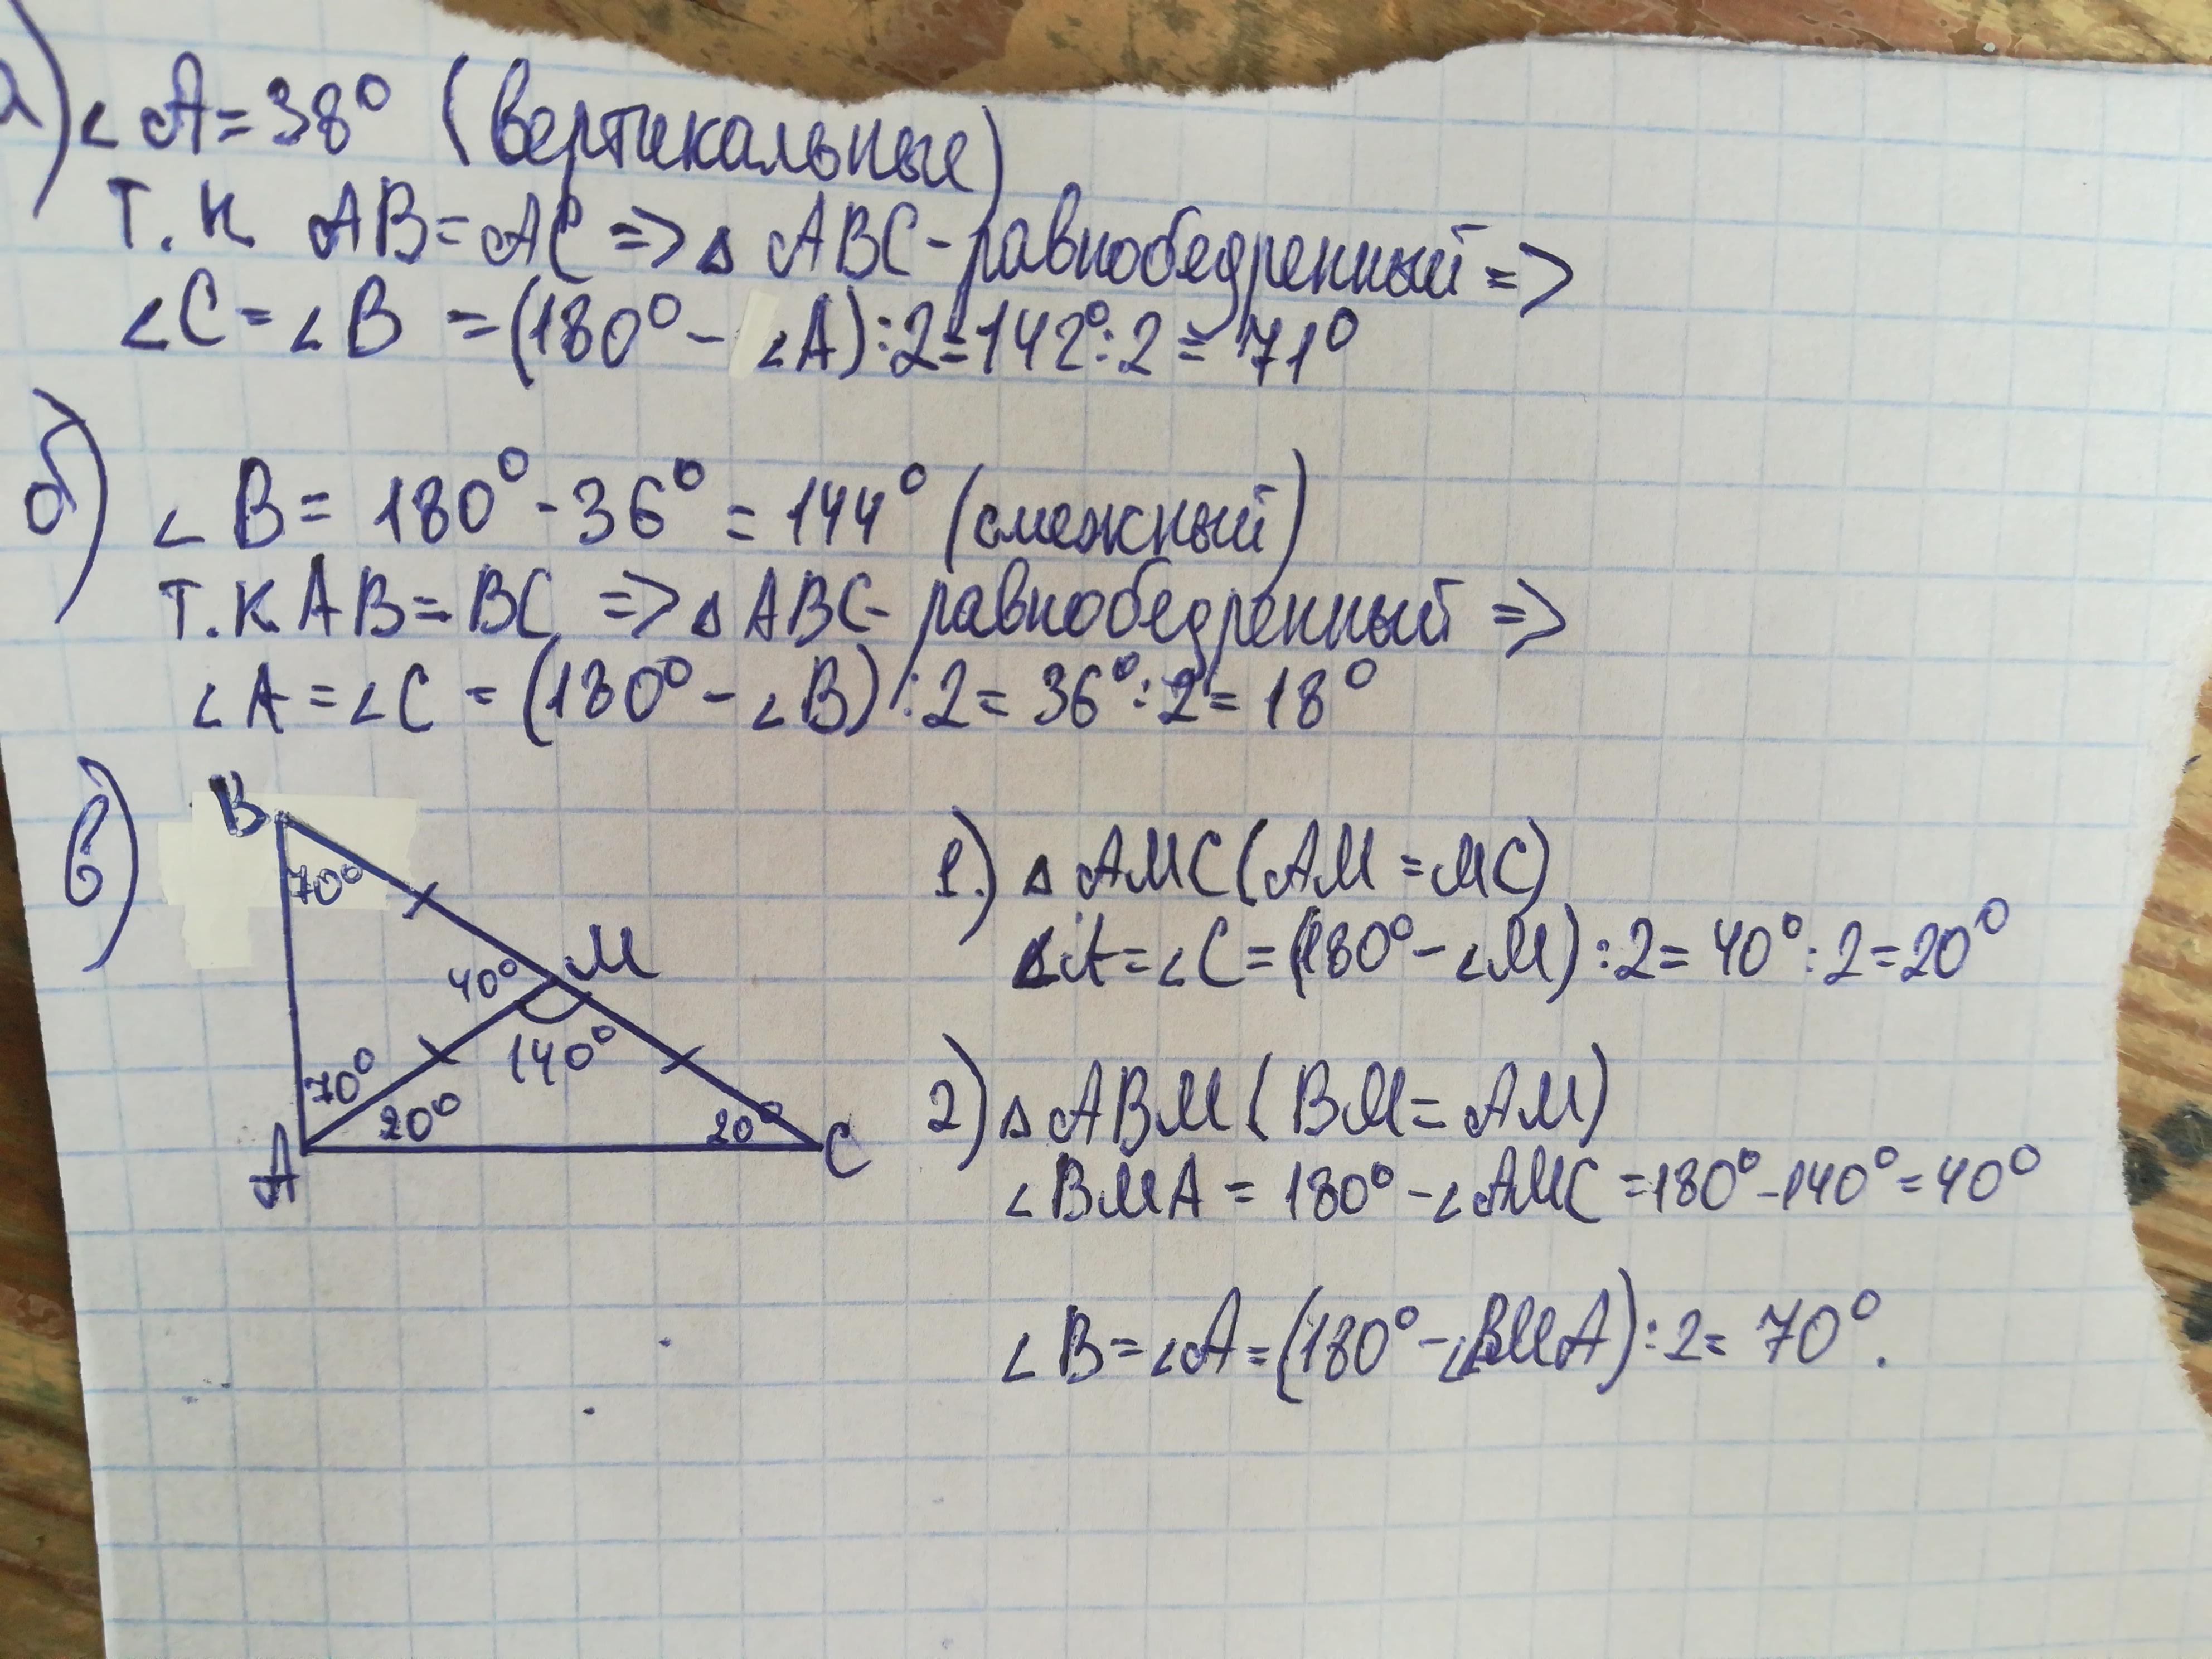 а) ∠A = 38° (вертикальные)
т.к AB = AC => △ ABC - равнобедренный =>
∠C = ∠B = (180° - ∠A) : 2 = 142° : 2 = 71°
б) ∠B = 180° - 36° = 144° (смежный)
т.к AB = BC => △ ABC - равнобедренный =>
∠A = ∠C = (180° - ∠B) : 2 = 36° : 2 = 18°
в)
B
70°
40° M
140°
70°
20°
20°
A
C
1.) △ AMC (AM = MC)
∠A = ∠C = (180° - ∠M) : 2 = 40° : 2 = 20°
2) △ ABM (BM = AM)
∠BMA = 180° - ∠AMC = 180° - 140° = 40°
∠B = ∠A = (180° - ∠BMA) : 2 = 70°.